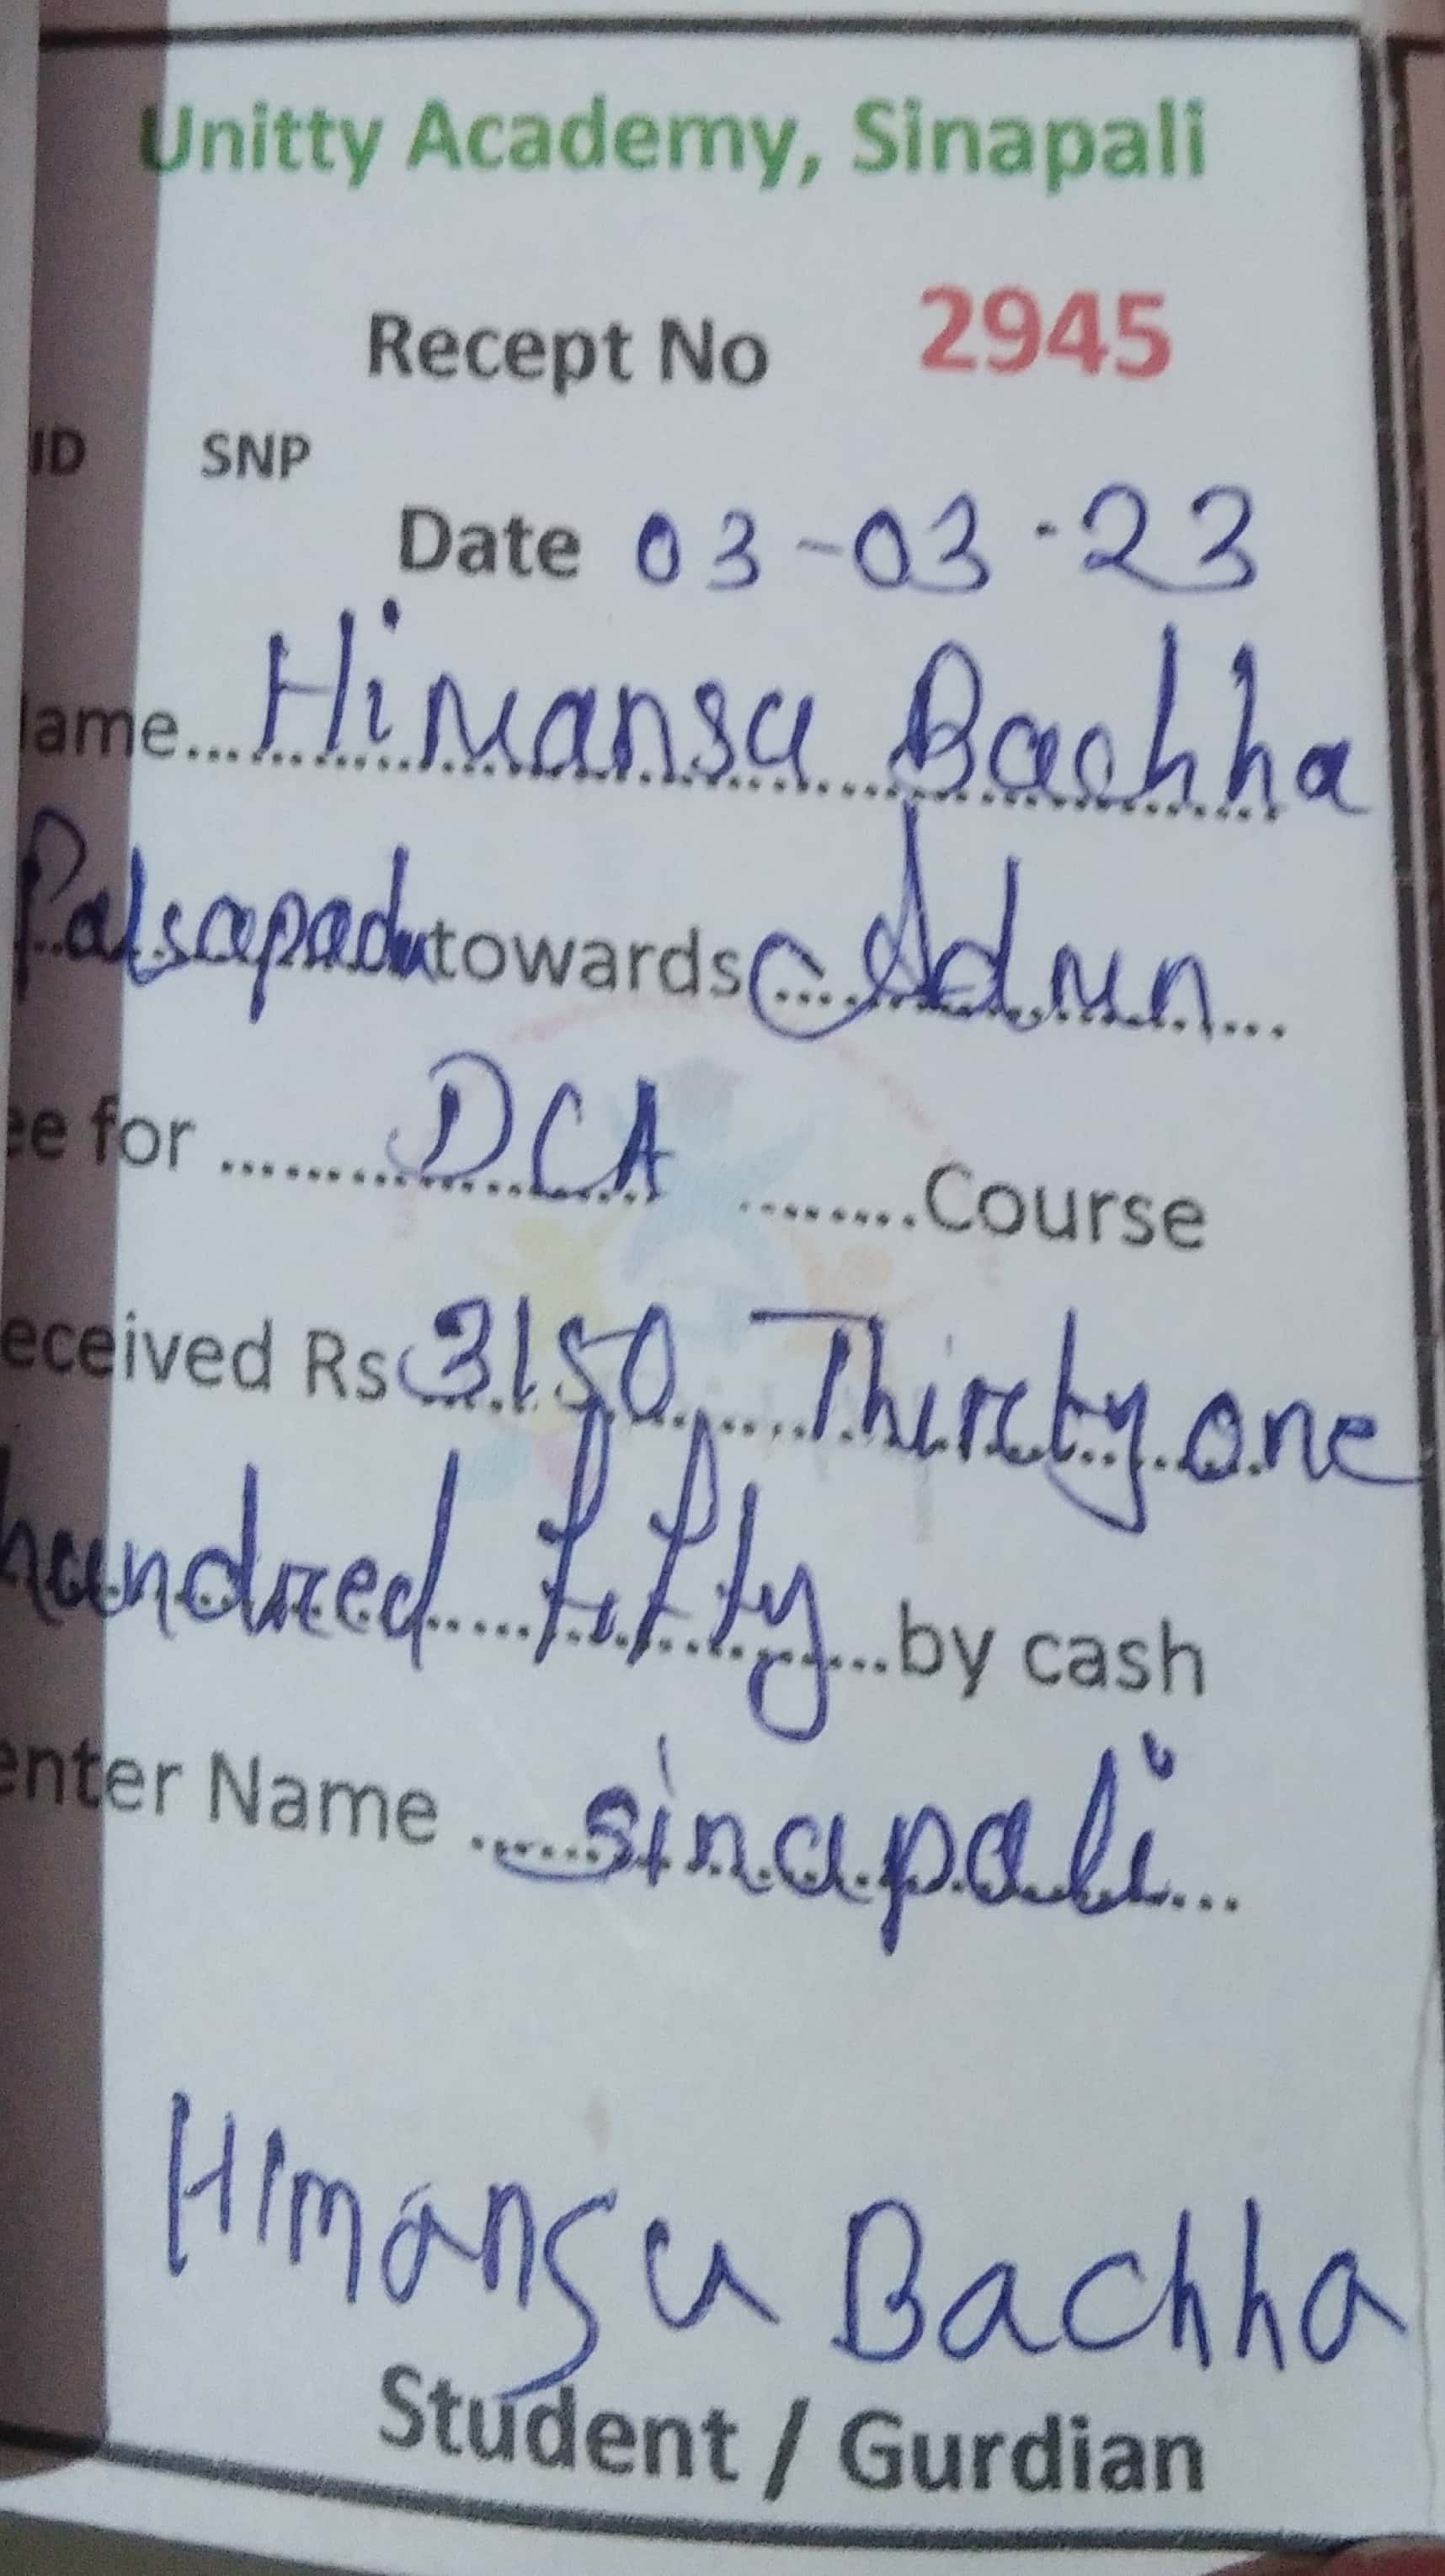 Unitty Academy, Sinapali
Recept No 2945
ID SNP
Date 03-03-23
ame... Himansu Bachha
Palsapada towards Admn
ee for DCA Course
eceived Rs 3150 Thirty one
hundred fifty by cash
enter Name sinapali
Himansu Bachha
Student / Gurdian